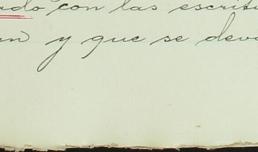 ado con las escritu
an y que se devo